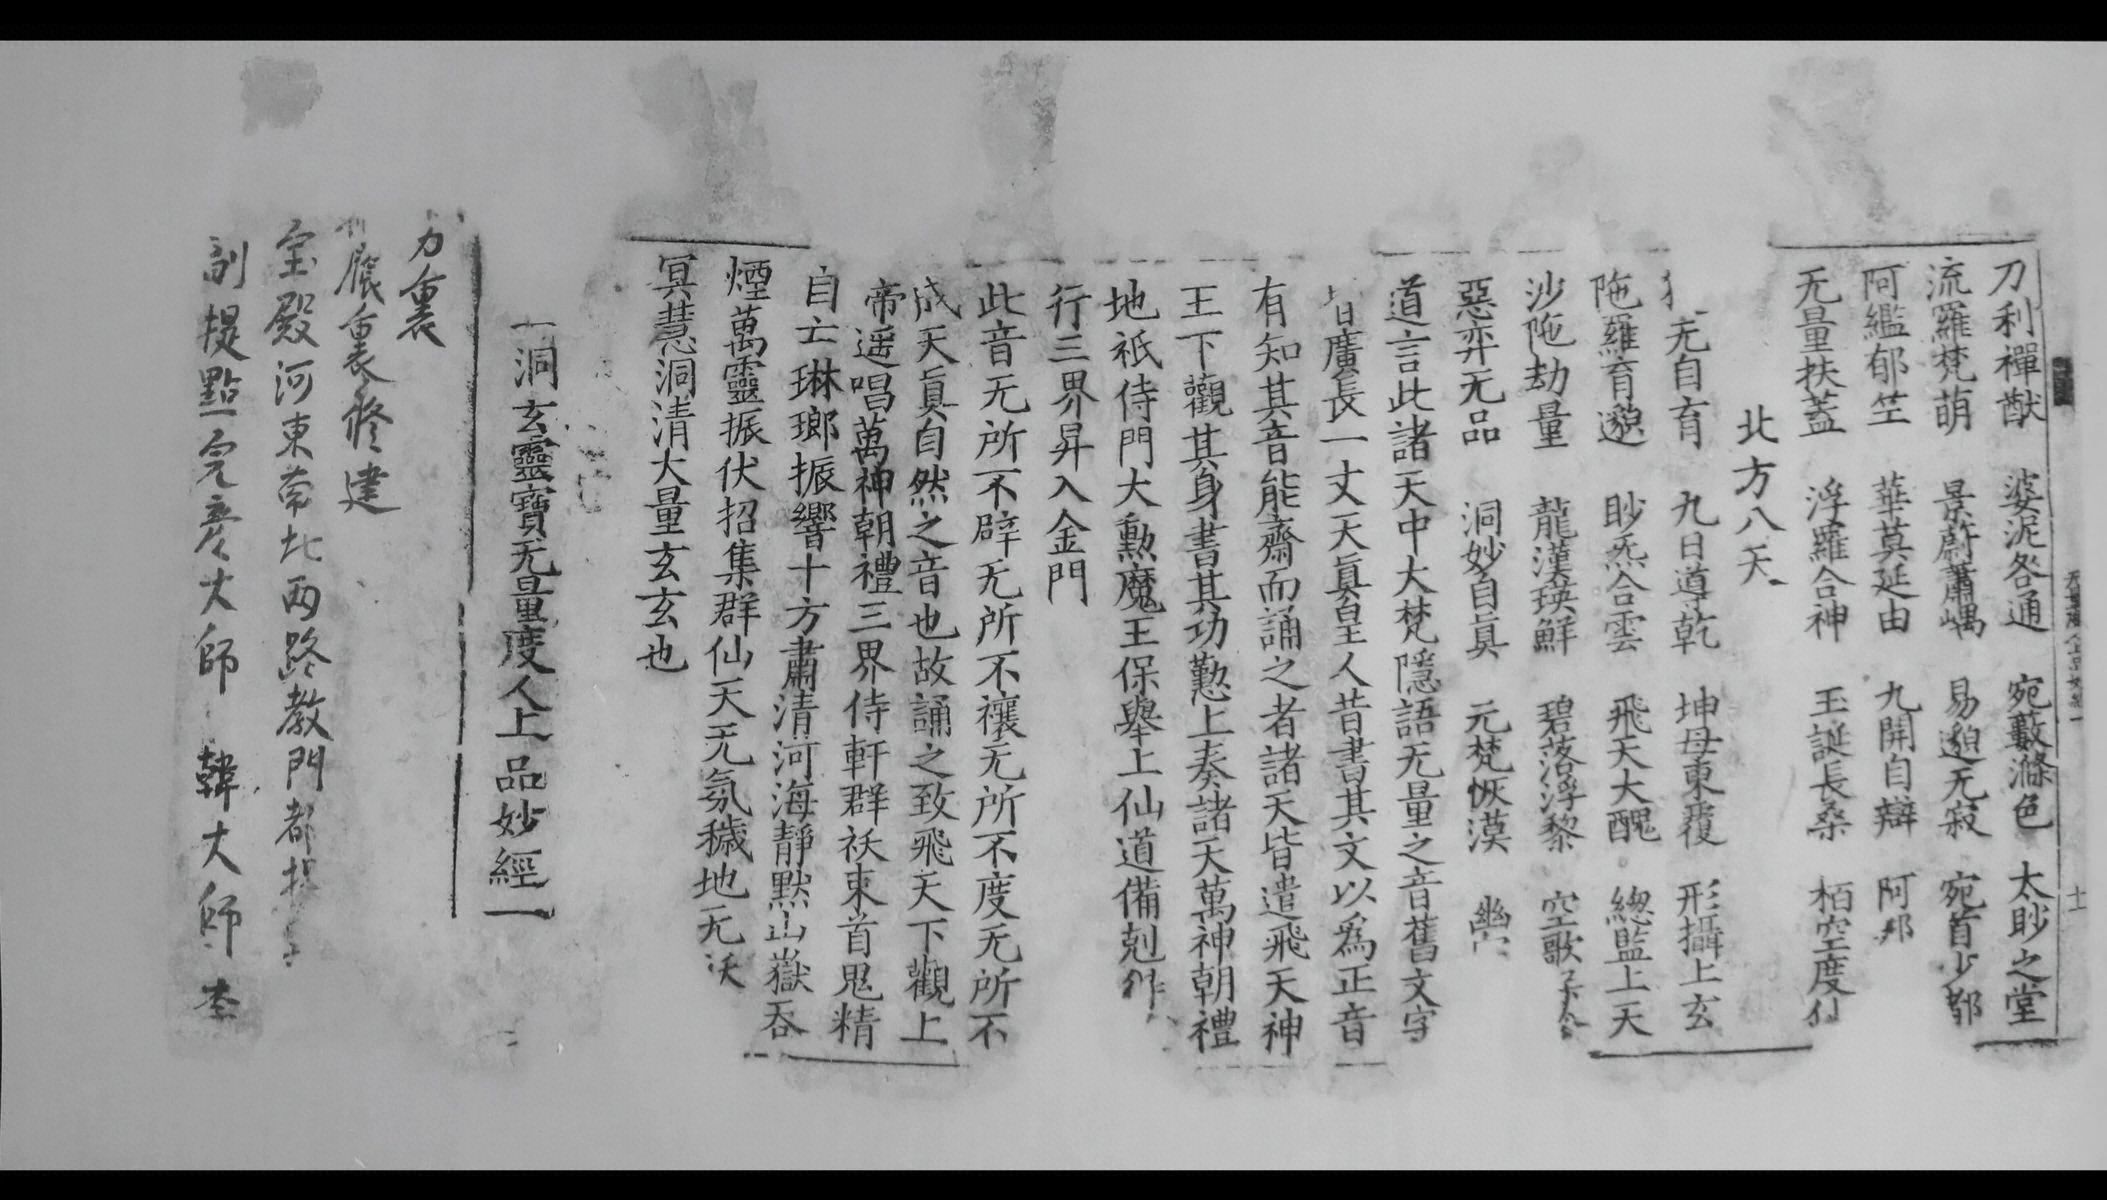 刀利禪猷　婆泥咎通　宛藪滌色　太眇之堂
流羅梵萌　景蔚蕭嵎　易邈无寂　宛首少都
阿縕郁竺　華莫延由　九開自辯　阿那
无量扶蓋　浮羅合神　玉誕長桑　栢空度仙
北方八天
无自育　九日導乾　坤母東覆　形攝上玄
陁羅育邈　眇炁合雲　飛天大醜　總監上天
沙陁劫量　龍漢瑛鮮　碧落浮黎　空歌
惡弈无品　洞妙自眞　元梵恢漠　幽
道言此諸天中大梵隱語无量之音舊文字
皆廣長一丈天眞皇人昔書其文以爲正音
有知其音能齋而誦之者諸天皆遣飛天神
王下觀其身書其功懃上奏諸天萬神朝禮
地祇侍門大勳魔王保舉上仙道備剋
行三界昇入金門
此音无所不辟无所不禳无所不度无所不
成天眞自然之音也故誦之致飛天下觀上
帝遥唱萬神朝禮三界侍軒群祅束首鬼精
自亡琳瑯振響十方肅清河海靜默山嶽吞
煙萬靈振伏招集群仙天无氛穢地无
冥慧洞清大量玄玄也
洞玄靈寶无量度人上品妙經
力裏
裏修建
宝殿河東南北两路教門都
副提點 大師 韓大師 李